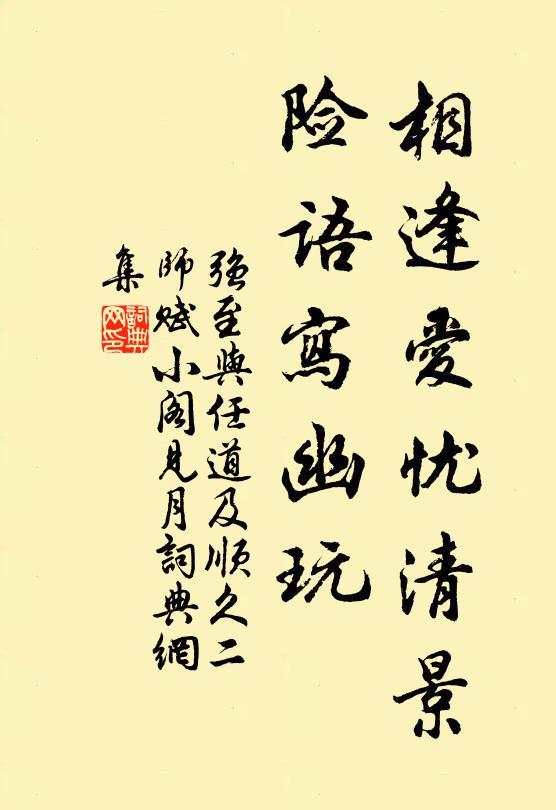 相逢爱忧清景
险语寫幽玩
强至與任道及顺久二
師赋小阁見月詞典網
集
詞典
网印